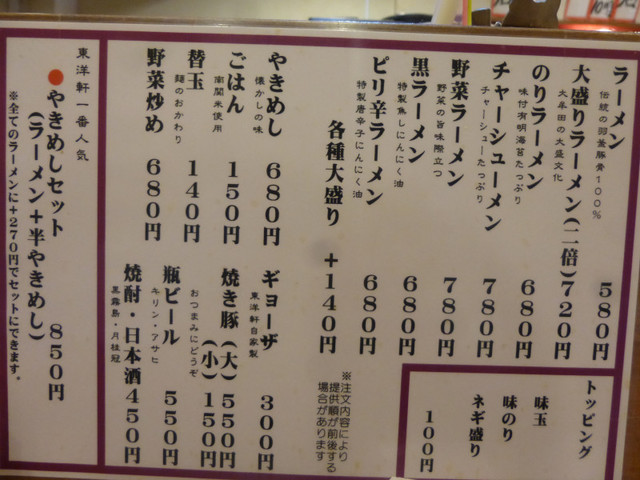 ラーメン 580円
伝統の羽釜豚骨100%
大盛りラーメン(二倍)720円
大牟田の大盛文化
のりラーメン 680円
味付有明海苔たっぷり
チャーシューメン 780円
チャーシューたっぷり
野菜ラーメン 780円
野菜の旨味際立つ
黒ラーメン 680円
特製焦しにんにく油
ピリ辛ラーメン 680円
特製唐辛子にんにく油
各種大盛り +140円
※注文内容により
提供順が前後する
場合があります
トッピング
味玉
味のり
ネギ盛り
100円
やきめし 680円
懐かしの味
ごはん 150円
南関米使用
替玉 140円
麺のおかわり
野菜炒め 680円
ギョーザ 300円
東洋軒自家製
焼き豚(大)550円
(小)150円
おつまみにどうぞ
瓶ビール 550円
キリン・アサヒ
焼酎・日本酒450円
黒霧島・月桂冠
東洋軒一番人気
●やきめしセット 850円
(ラーメン+半やきめし)
※全てのラーメンに+270円でセットにできます。